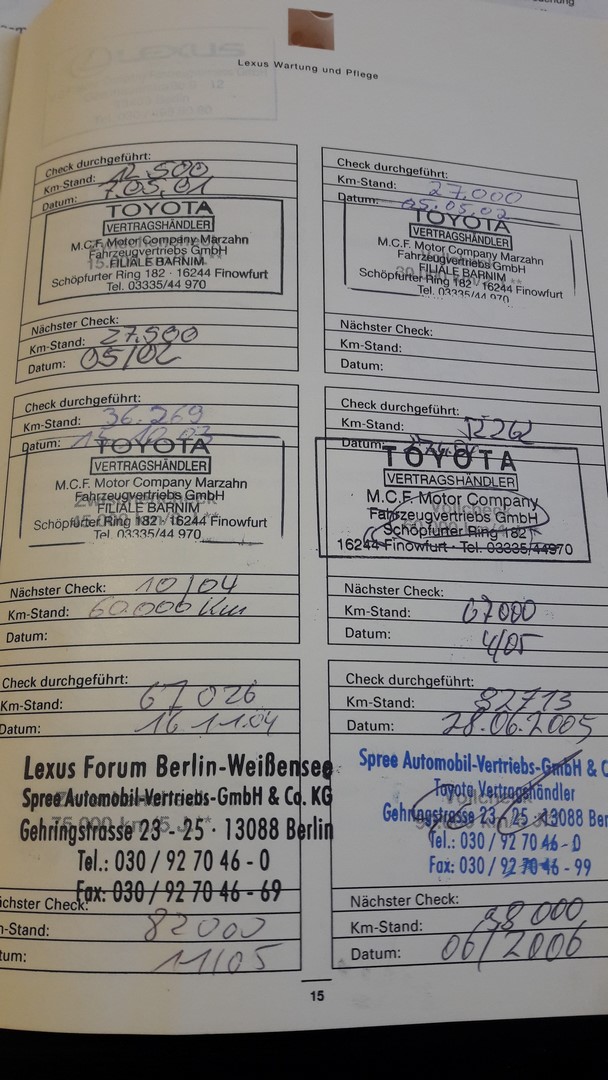 Lexus Wartung und Pflege
Check durchgeführt:
Km-Stand: 12.500
Datum: 7.05.01
TOYOTA
VERTRAGSHÄNDLER
M.C.F. Motor Company Marzahn
Fahrzeugvertriebs GmbH
FILIALE BARNIM
Schöpfurter Ring 182 · 16244 Finowfurt
Tel. 03335/44 970
Nächster Check:
Km-Stand: 27.500
Datum: 05/02
Check durchgeführt:
Km-Stand: 27.000
Datum: 05.05.02
TOYOTA
VERTRAGSHÄNDLER
M.C.F. Motor Company Marzahn
Fahrzeugvertriebs GmbH
FILIALE BARNIM
Schöpfurter Ring 182 · 16244 Finowfurt
Tel. 03335/44 970
Nächster Check:
Km-Stand:
Datum:
Check durchgeführt:
Km-Stand: 36.269
Datum:
TOYOTA
VERTRAGSHÄNDLER
M.C.F. Motor Company Marzahn
Fahrzeugvertriebs GmbH
FILIALE BARNIM
Schöpfurter Ring 182 · 16244 Finowfurt
Tel. 03335/44 970
Nächster Check: 10/04
Km-Stand: 60.000 Km
Datum:
Check durchgeführt:
Km-Stand:
Datum:
TOYOTA
VERTRAGSHÄNDLER
M.C.F. Motor Company
Fahrzeugvertriebs GmbH
Schöpfurter Ring 182
16244 Finowfurt · Tel. 03335/44970
Nächster Check:
Km-Stand: 67000
Datum: 4/05
Check durchgeführt:
Km-Stand: 67026
Datum: 16.11.04
Lexus Forum Berlin-Weißensee
Spree Automobil-Vertriebs-GmbH & Co. KG
Gehringstrasse 23 - 25 · 13088 Berlin
Tel.: 030 / 92 70 46 - 0
Fax: 030 / 92 70 46 - 69
chster Check:
-Stand: 82000
tum: 11/05
Check durchgeführt:
Km-Stand: 82713
Datum: 28.06.2005
Spree Automobil-Vertriebs-GmbH & C
Toyota Vertragshändler
Gehringstrasse 23 / 25 · 13088 Ber
Tel.: 030 / 92 70 46 - 0
Fax: 030 / 92 70 46 - 99
Nächster Check:
Km-Stand: 98000
Datum: 06/2006
15